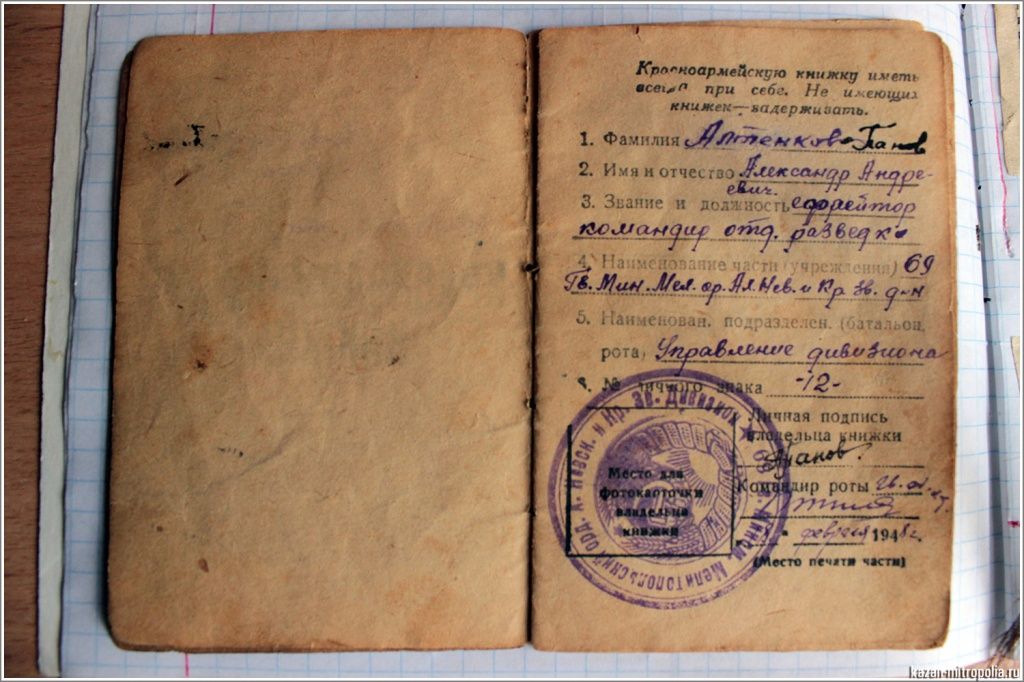 Красноармейскую книжку иметь
всегда при себе. Не имеющих
книжек—задерживать.
1. Фамилия Алтенков-Панов
2. Имя и отчество Александр Андре-
евич.
3. Звание и должность ефрейтор
командир отд. разведки
4. Наименование части (учреждения) 69
Гв. Мин. Мел. ор. Ал. Нев. и Кр. Зв. д-н
5. Наименован. подразделен. (батальон,
рота) Управление дивизиона
6. № личного знака -12-
Личная подпись
владельца книжки
Командир роты
февраля 1948г.
(Место печати части)
Место для
фотокарточки
владельца
книжки
69 Гв. Мином. Мелитопольский орд. А. Невск. и Кр. Зв. Дивизион
kazan-mitropolia.ru